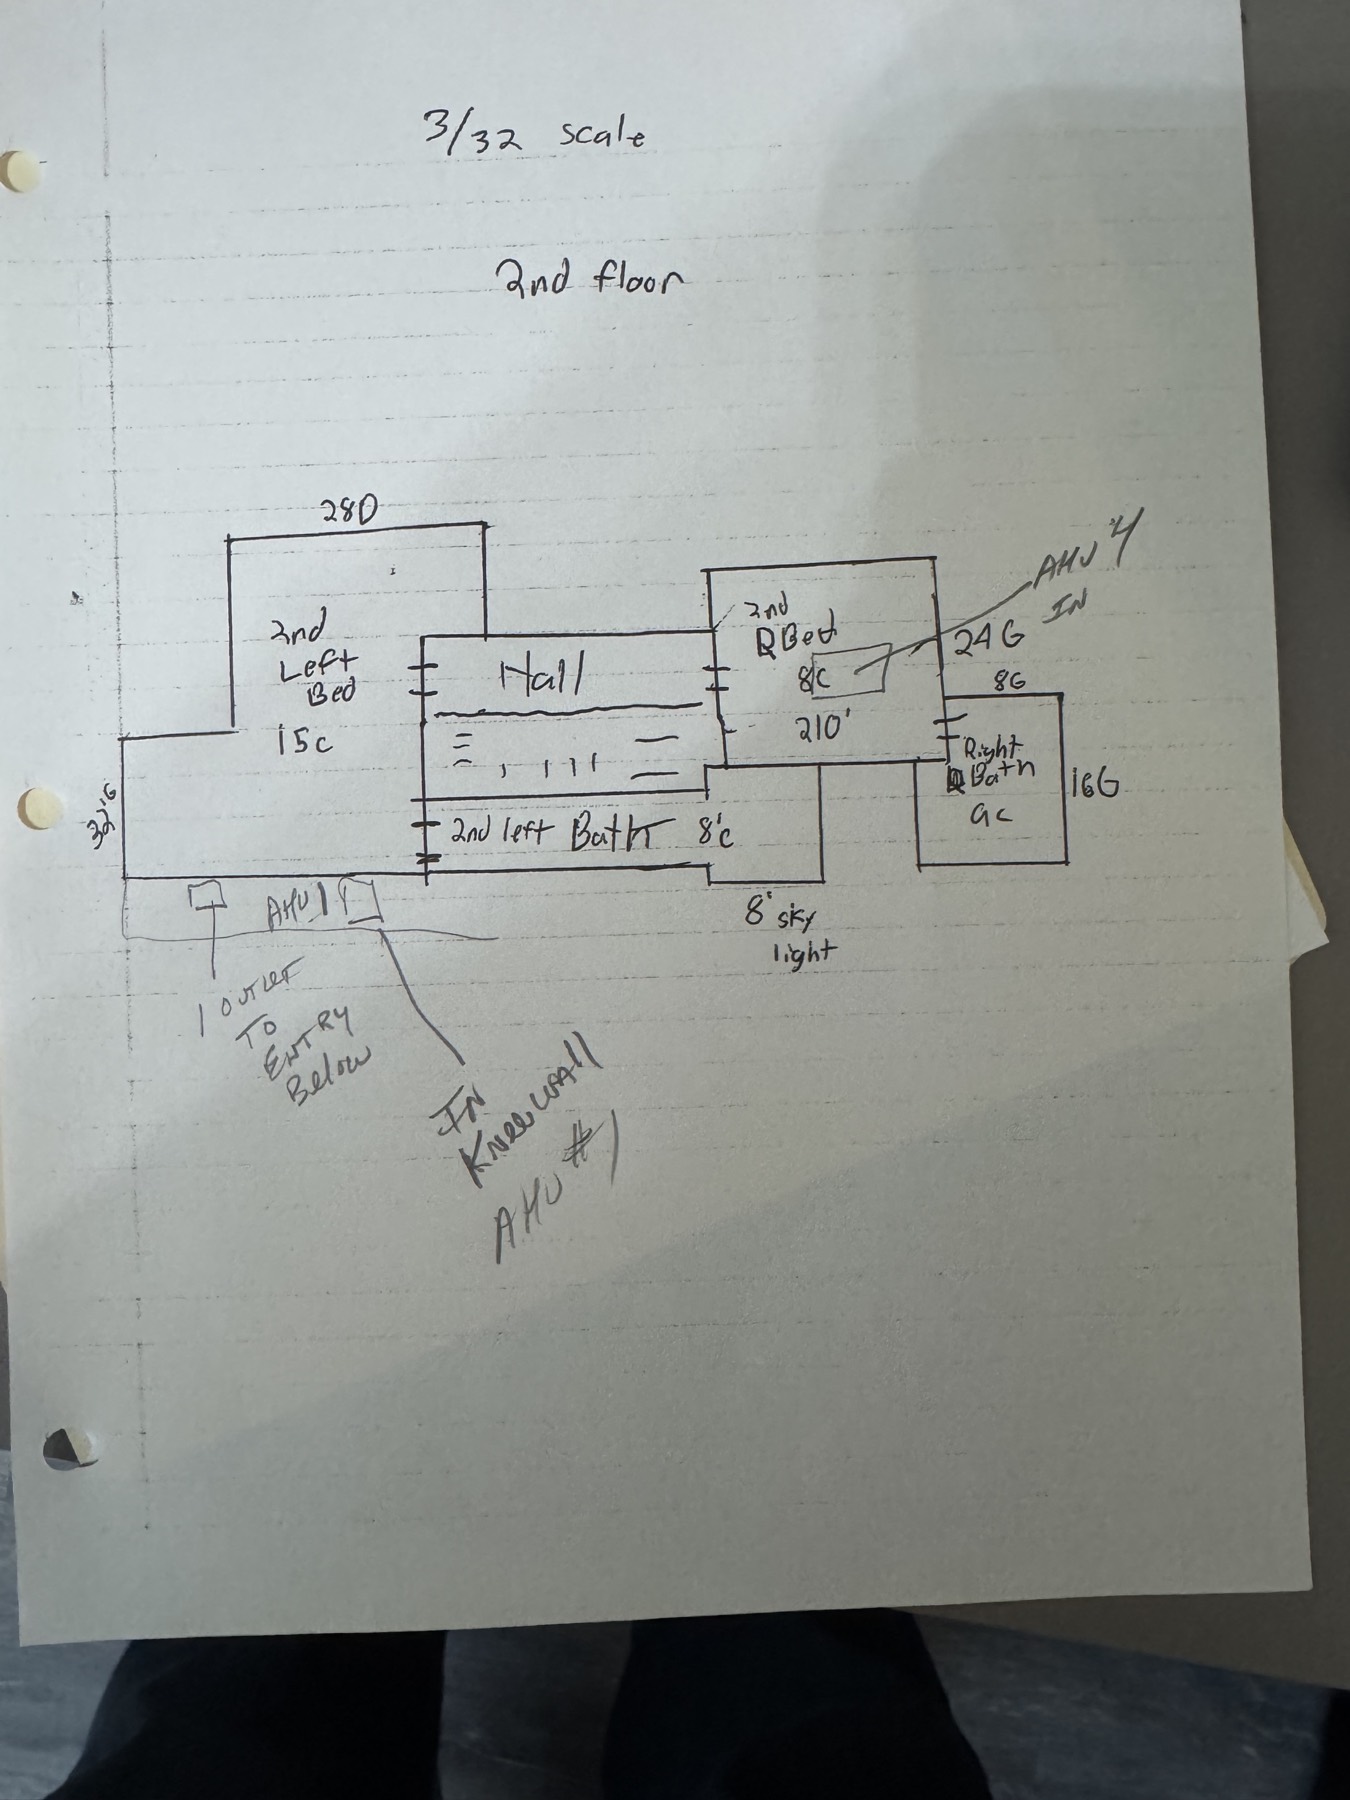 3/32 scale
2nd floor
28D
2nd
Left
Bed
15c
32'G
Hall
2nd left Bath 8'c
2nd
RBed
8c
210'
24G
AHU #4
IN
8G
Right
Bath
9c
16G
8' sky
light
AHU 1
1 OUTLET
TO
ENTRY
Below
IN
KneeWAll
AHU #1